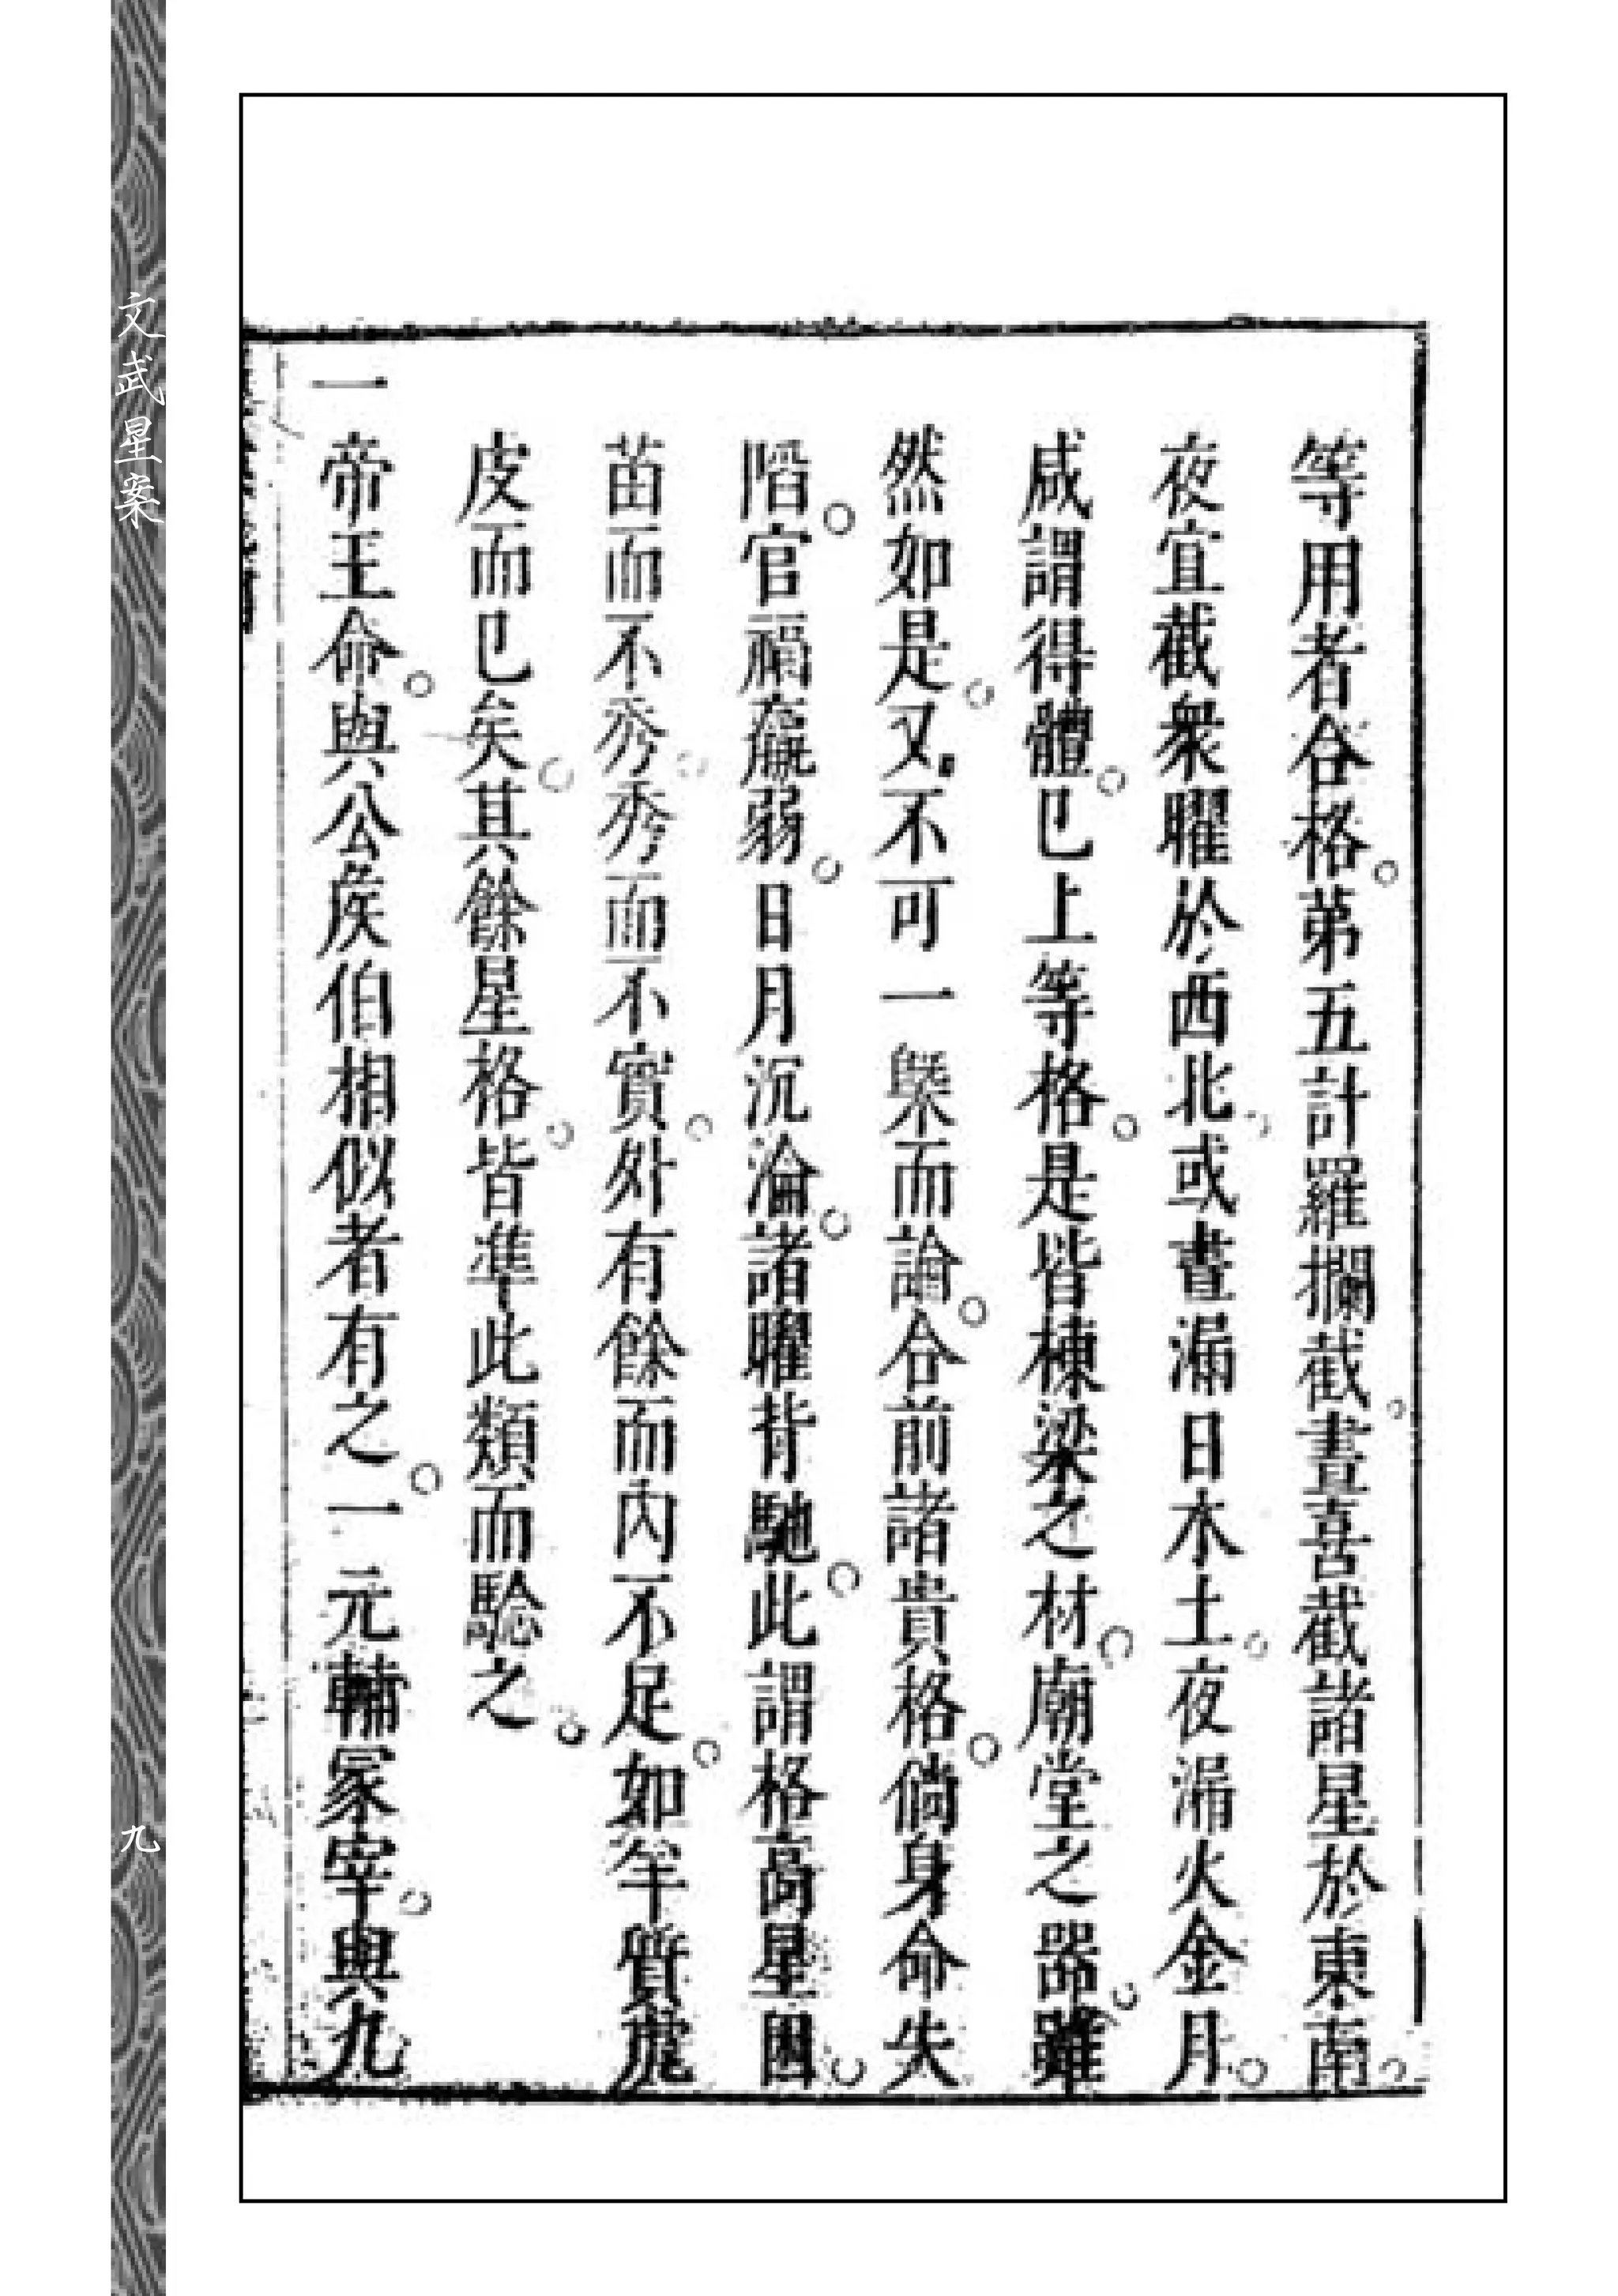 等用者合格。第五計羅攔截。晝喜截諸星於東南。
夜宜截衆曜於西北。或晝漏日木土。夜漏火金月。
咸謂得體。已上等格。是皆棟梁之材。廟堂之器。雖
然如是。又不可一槩而論。合前諸貴格。倘身命失
陷。官福羸弱。日月沉淪。諸曜背馳。此謂格高星困。
苗而不秀。秀而不實。外有餘而内不足。如羊質虎
皮而已矣。其餘星格。皆凖此類而騐之。
一帝王命。與公侯伯相似者有之。一元輔冢宰。與九
文武星案
九